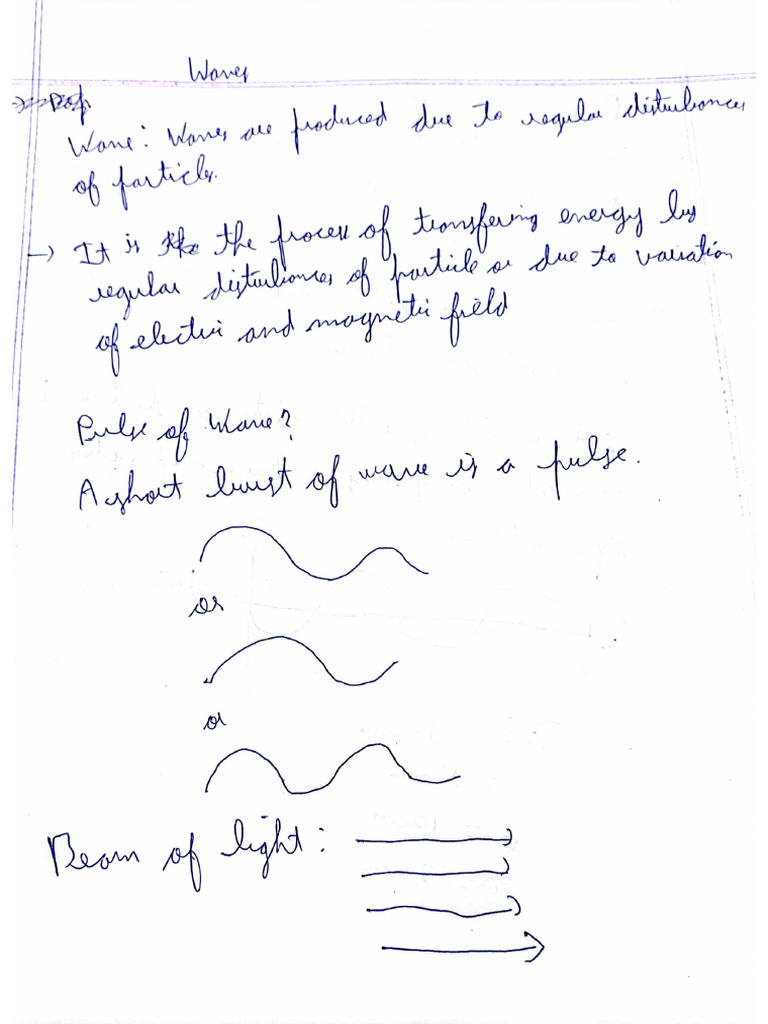 Waves
Def
Wave: Waves are produced due to regular disturbances
of particles.
→ It is the the process of transfering energy by
regular disturbances of particle or due to variation
of electric and magnetic field
Pulse of Wave?
A short burst of wave is a pulse.
or
or
Beam of light: